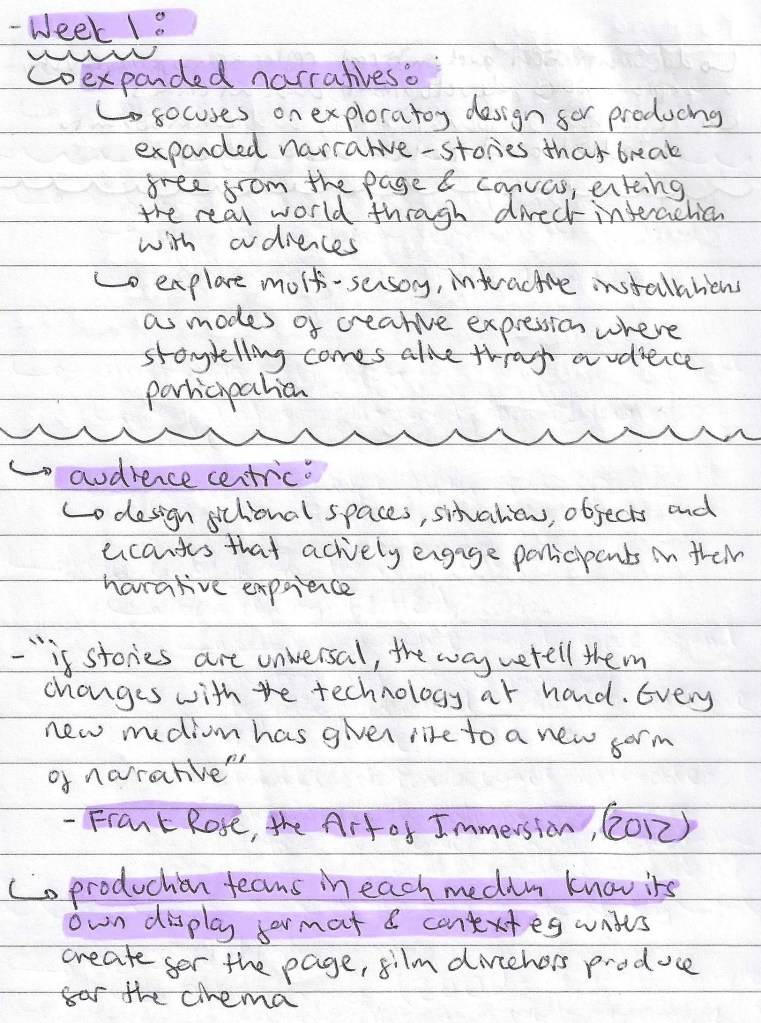 - Week 1:
↳ expanded narratives:
↳ focuses on exploratory design for producing
expanded narrative - stories that break
free from the page & canvas, entering
the real world through direct interaction
with audiences
↳ explore multi-sensory, interactive installations
as modes of creative expression where
storytelling comes alive through audience
participation
↳ audience centric:
↳ design fictional spaces, situations, objects and
encounters that actively engage participants in their
narrative experience
- "if stories are universal, the way we tell them
changes with the technology at hand. Every
new medium has given rise to a new form
of narrative"
- Frank Rose, the Art of Immersion, (2012)
↳ production teams in each medium know its
own display format & context eg writers
create for the page, film directors produce
for the cinema